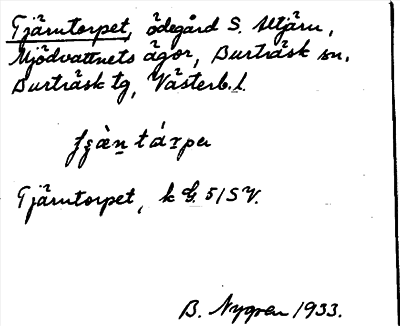 Tjärntorpet, ödegård S. Utjärn,
Mjödvattnets ägor, Burträsk sn,
Burträsk tg, Västerb. l.
Tjärntorpet, k G. 5/SV.
B. Nygren 1933.